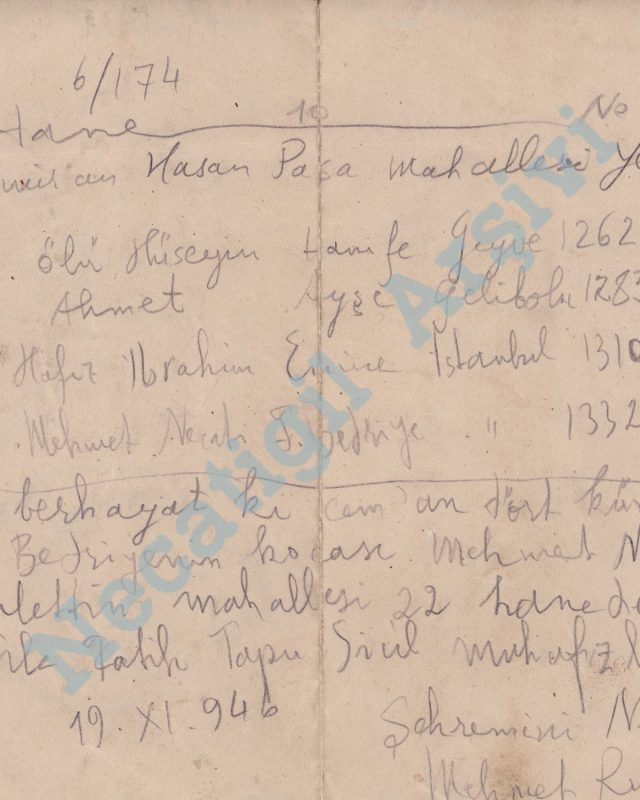 6/174
Hane 10 No
Hasan Paşa mahallesi Ye
ölü Hüseyin Hanife Geyve 1262
Ahmet Ayşe Gelibolu 1283
Hafız İbrahim Emine İstanbul 1310
Mehmet Necati F. Bedriye " 1332
berhayat ki cem'an dört kür
Bedriyenin kocası Mehmet N
alettin mahallesi 22 hanede
ile Fatih Tapu Sicil muhafızl
19.XI.946 Şehremini N
Mehmet R
Necatigil Arşivi